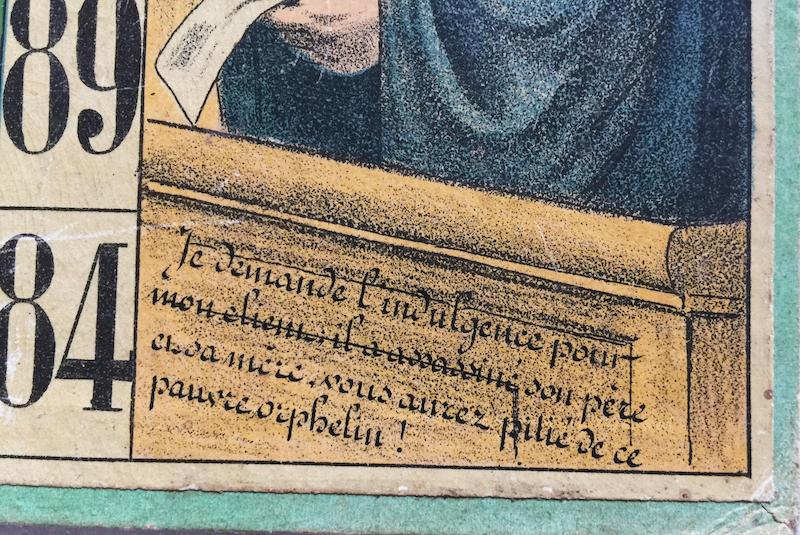 89
84
Je demande l'indulgence pour
mon client s'il a assassiné son père
et sa mère, vous aurez pitié de ce
pauvre orphelin !